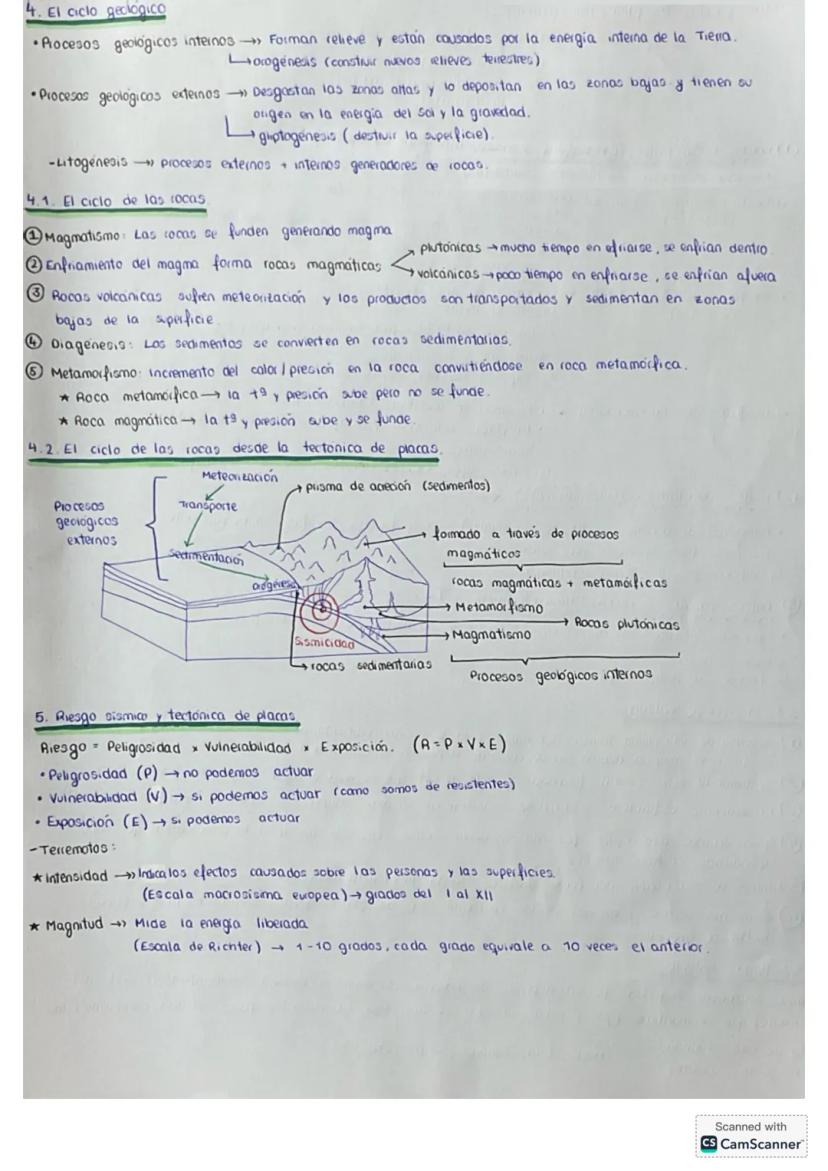 4. El ciclo geológico
• Procesos geológicos internos →» Forman relieve y están causados por la energía interna de la Tierra.
↳ orogénesis (construir nuevos relieves terrestres)
• Procesos geológicos externos →» Desgastan las zonas altas y lo depositan en las zonas bajas y tienen su
origen en la energía del sol y la gravedad.
↳ gliptogénesis (destruir la superficie).
- Litogénesis →» procesos externos + internos generadores de rocas.
4.1. El ciclo de las rocas
① Magmatismo: Las rocas se funden generando magma
② Enfriamiento del magma forma rocas magmáticas
plutónicas → mucho tiempo en enfriarse, se enfrían dentro
volcánicas → poco tiempo en enfriarse, se enfrían afuera
③ Rocas volcánicas sufren meteorización y los productos son transportados y sedimentan en zonas
bajas de la superficie.
④ Diagénesis: Los sedimentos se convierten en rocas sedimentarias.
⑤ Metamorfismo: incremento del calor/presión en la roca convirtiéndose en roca metamórfica.
★ Roca metamórfica → la tª y presión sube pero no se funde.
★ Roca magmática → la tª y presión sube y se funde.
4.2. El ciclo de las rocas desde la tectónica de placas.
Meteorización
prisma de acreción (sedimentos)
Procesos
geológicos
externos
Transporte
formado a través de procesos
magmáticos
sedimentación
rocas magmáticas + metamórficas
orogénesis
Metamorfismo
Rocas plutónicas
Magmatismo
Sismicidad
rocas sedimentarias
Procesos geológicos internos
5. Riesgo sísmico y tectónica de placas
Riesgo = Peligrosidad x Vulnerabilidad x Exposición. (R = P x V x E)
• Peligrosidad (P) → no podemos actuar
• Vulnerabilidad (V) → si podemos actuar (como somos de resistentes)
• Exposición (E) → si podemos actuar
- Terremotos:
★ Intensidad →» Indica los efectos causados sobre las personas y las superficies.
(Escala macrosísma europea) → grados del I al XII
★ Magnitud →» Mide la energía liberada
(Escala de Richter) → 1-10 grados, cada grado equivale a 10 veces el anterior.
Scanned with
CS CamScanner